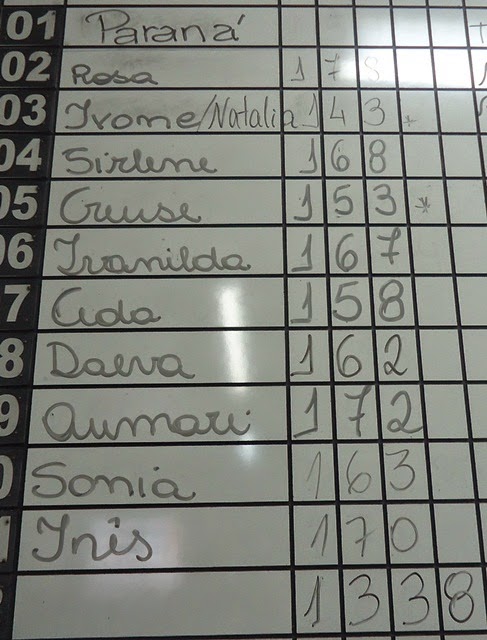 01 Paraná
02 Rosa 178
03 Ivome/Natalia 143 *
04 Sirlene 168
05 Creuse 153 *
06 Ivanilda 167
7 Cida 158
8 Daeva 162
9 Aumari 172
0 Sonia 163
Inês 170
1338